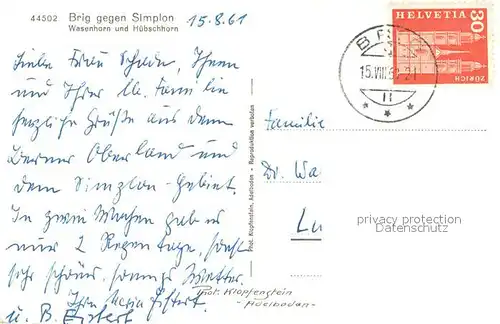 44502 Brig gegen Simplon 15.8.61
Wasenhorn und Hübschhorn
Liebe Frau Schade, Ihnen
und Ihrer lb. Familie
herzliche Grüße aus dem
Berner Oberland und
dem Simplon-Gebiet.
In zwei Wochen gab es
nur 2 Regentage, sonst
sehr schönes, sonniges Wetter.
Ihre Maria
u. B.
Phot. Klopfenstein, Adelboden - Reproduktion verboten
HELVETIA
30
ZÜRICH
BRIG
15.VIII.
II
Familie
Dr. Wa
Lu
privacy protection
Persönlichkeitsrecht
Phot. Klopfenstein
- Adelboden -